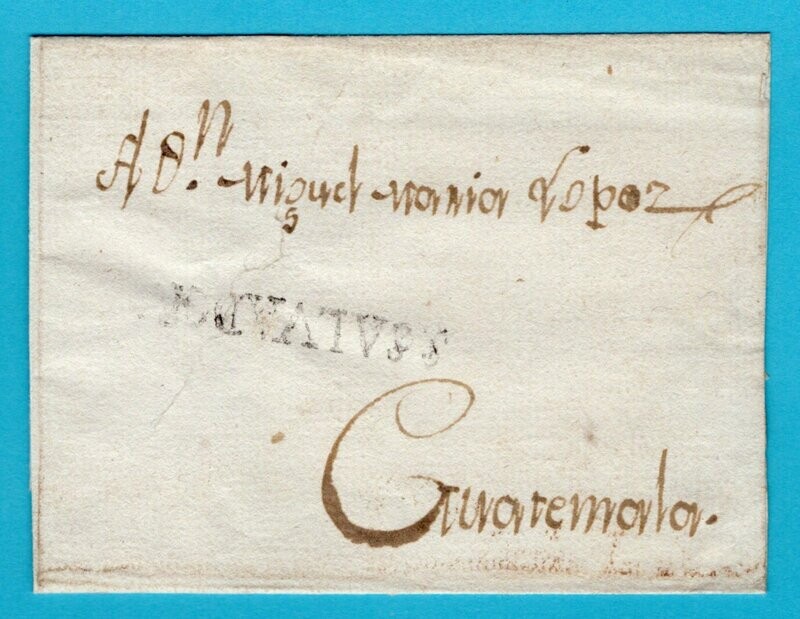 A D.ⁿ Miguel Maria Lopez
Guatemala.